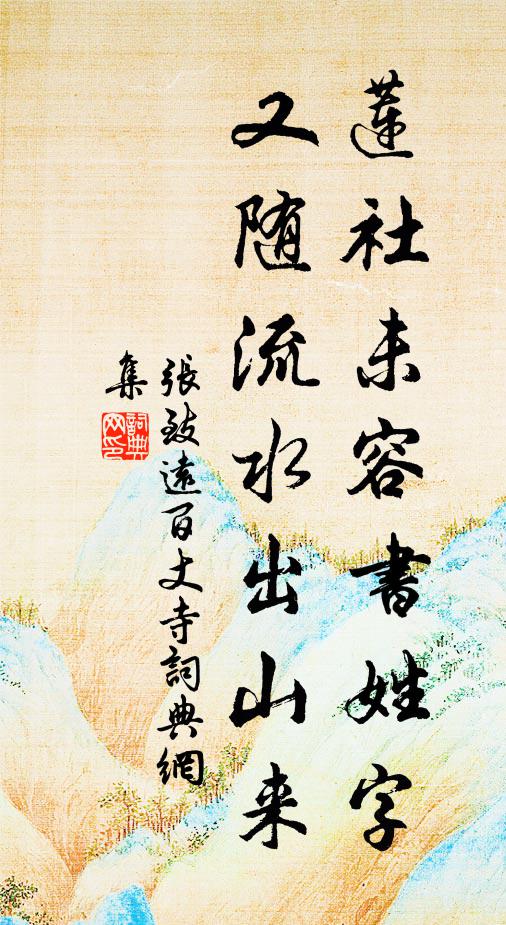 蓮社未容書姓字
又随流水出山来
張致遠百丈寺詞典網
集
詞典
网印